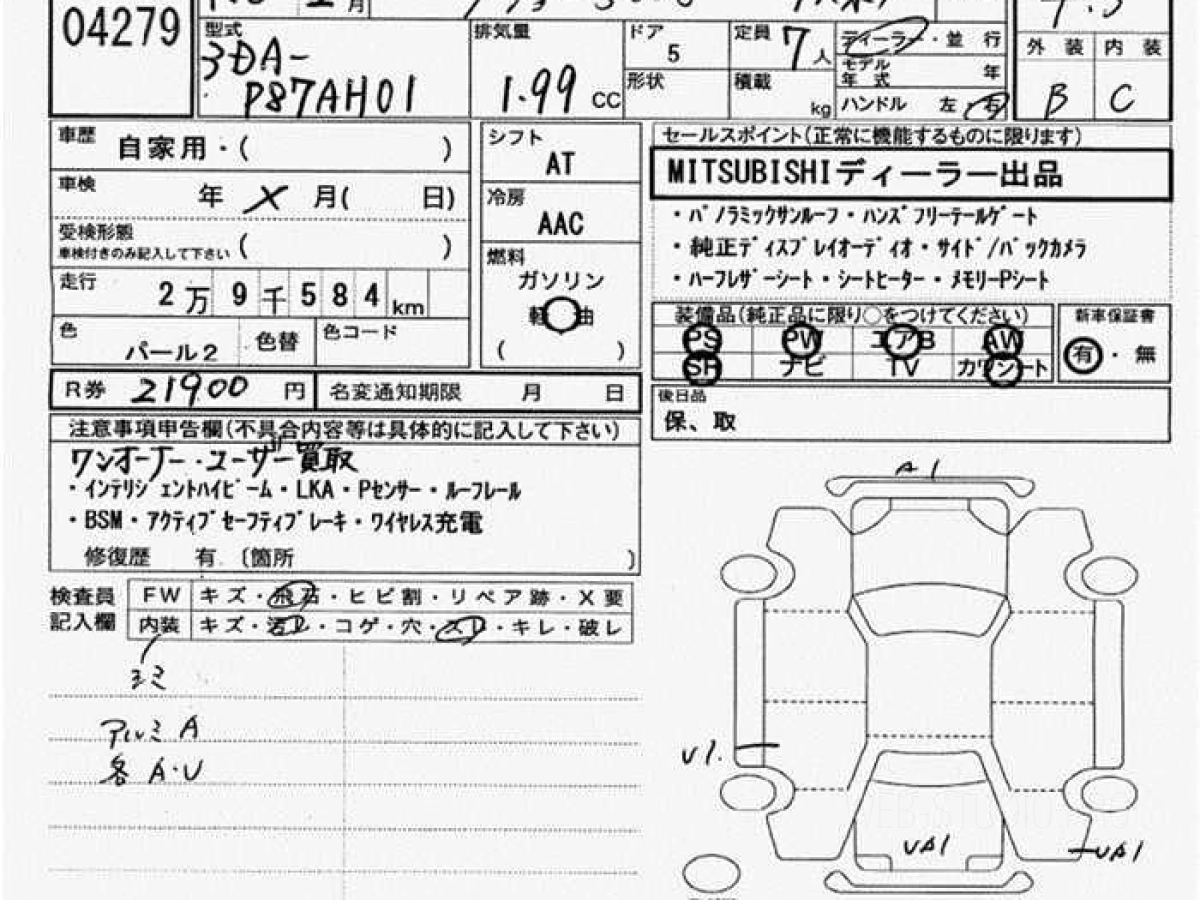 04279
月
型式
3DA-
P87AH01
排気量
1.99 CC
ドア
5
形状
定員
7人
積載
kg
ディーラー・並 行
モデル
年 式 年
ハンドル 左・右
外 装 内 装
B C
車歴
自家用・( )
車検
年 X 月( 日)
受検形態
車検付きのみ記入して下さい ( )
走行
2万9千584km
色
パール2
色替
色コード
シフト
AT
冷房
AAC
燃料
ガソリン
軽油
( )
セールスポイント(正常に機能するものに限ります)
MITSUBISHIディーラー出品
・パノラミックサンルーフ・ハンズフリーテールゲート
・純正ディスプレイオーディオ・サイド/バックカメラ
・ハーフレザーシート・シートヒーター・メモリーPシート
装備品(純正品に限り○をつけてください)
PS PW エアB AW
SR ナビ TV カワシート
新車保証書
有・無
R券 21900 円
名変通知期限 月 日
後日品
保、取
注意事項申告欄(不具合内容等は具体的に記入して下さい)
ワンオーナー・ユーザー買取
・インテリジェントハイビーム・LKA・Pセンサー・ルーフレール
・BSM・アクティブセーフティブレーキ・ワイヤレス充電
修復歴 有 〔箇所 )
検査員
記入欄
FW キズ・飛石・ヒビ割・リペア跡・X要
内装 キズ・汚レ・コゲ・穴・スレ・キレ・破レ
ヨミ
アルミ A
各 A・U
A1
U1.
UA1
UA1